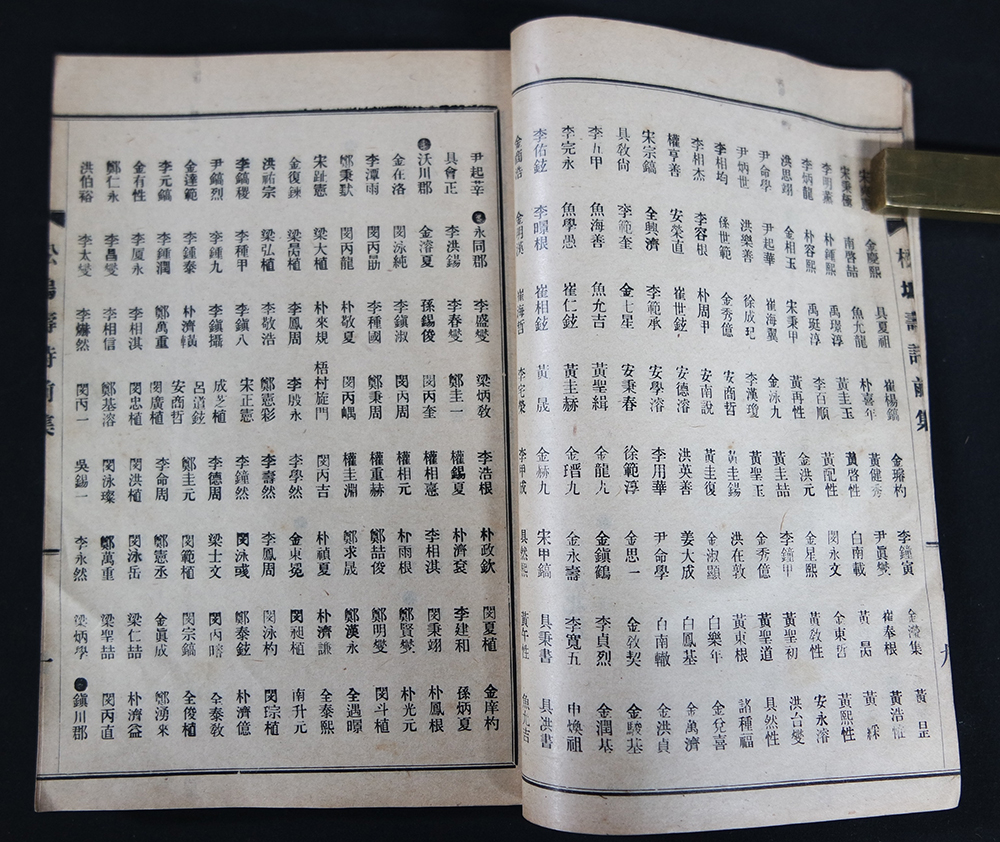 松塢壽詩前集 九
金慶熙 具夏祖 崔楊鎬 金璿杓 李鐘寅 金瀅集 黃昰
宋秉極 南啓喆 魚允龍 朴嘉年 黃健秀 尹眞燮 崔奉根 黃浩性
李明薰 朴鍾熙 禹璟淳 黃圭玉 黃啓性 白南載 黃昺 黃綵
李炳龍 朴容熙 禹珽淳 李百順 黃配性 閔永文 金東哲 黃熙性
洪思翊 金相玉 宋秉甲 黃再性 金洪元 金星熙 黃敎性 安永溶
尹命學 尹起華 崔海翼 金泳九 黃圭喆 李鐘甲 黃聖初 洪台燮
尹炳世 洪樂善 徐成玘 李漢瓊 黃聖玉 金秀億 黃聖道 具然性
李相均 係世範 金秀億 安商哲 黃圭錫 洪在敦 黃東根 諸種福
李相杰 李容根 朴周甲 安南說 黃圭復 金淑顯 白樂年 金兌喜
權亨善 安榮直 崔世鉉 安德溶 洪英善 姜大成 白鳳基 金萬濟
宋宗鎬 全興濟 李範承 安學溶 李用華 尹命學 白南轍 金洪貞
具敎尙 李範奎 金七星 安秉春 徐範淳 金思一 金敎契 金駿基
李五甲 魚海善 魚允吉 黃聖緝 金龍九 金鎭鶴 李貞烈 金潤基
李完永 魚學愚 崔仁鉉 黃圭赫 金瑨九 金永壽 李寬五 申煥祖
李佑鉉 李暺根 崔相鉉 黃晟 金赫九 宋甲鎬 具秉書 具洪書
崔海哲 李宅榮 李甲成 具然熙 黃午性 魚允吉
尹起莘 ●永同郡 李盛燮 梁炳敎 李浩根 朴政欽 閔夏植 金庠杓
具會正 李洪錫 李春燮 鄭圭一 權錫夏 朴濟袞 李建和 孫炳夏
●沃川郡 金溶夏 孫錫俊 閔丙奎 權相憙 李相淇 閔秉翊 朴鳳根
金在洛 閔泳純 李鎭淑 閔丙周 權相元 朴雨根 鄭賢燮 朴光元
李漳雨 閔丙勛 李種國 鄭秉周 權重赫 鄭喆俊 鄭明燮 閔斗植
鄭秉默 閔丙龍 朴敬夏 閔丙嵎 權圭淵 鄭求晟 鄭漢永 全遇暻
宋趾憲 梁大植 朴來規 梧村旌門 閔丙吉 朴禎夏 朴濟謙 全泰熙
金復鍊 梁昺植 李鳳周 李殷永 李學然 金東冕 閔昶植 南升元
洪祐宗 梁弘植 李敬浩 鄭憲彩 李壽然 李鳳周 閔泳杓 閔琮植
李鎬稷 李種甲 李鎭八 宋正憲 李鐘然 閔泳彧 鄭泰鉉 朴濟億
尹鎬烈 李鍾九 李鎭攝 成芝植 李德周 梁士文 閔丙晧 全泰敎
金達範 李鍾泰 朴濟璜 呂道鉉 鄭圭元 閔範植 閔宗鎬 全俊植
李元鎬 李鍾潤 鄭萬重 安商哲 閔廣植 李命周 鄭憲丞 金眞成 鄭湧來
金有性 李厦永 李相淇 閔忠植 閔洪植 閔泳岳 梁仁喆 朴濟益
鄭仁永 李昌燮 李相信 鄭基溶 閔泳璨 鄭萬重 梁聖喆 閔丙直
洪伯裕 李太燮 李爀然 閔丙一 吳錫一 李永然 梁炳學 ●鎭川郡
松塢壽詩前集 十